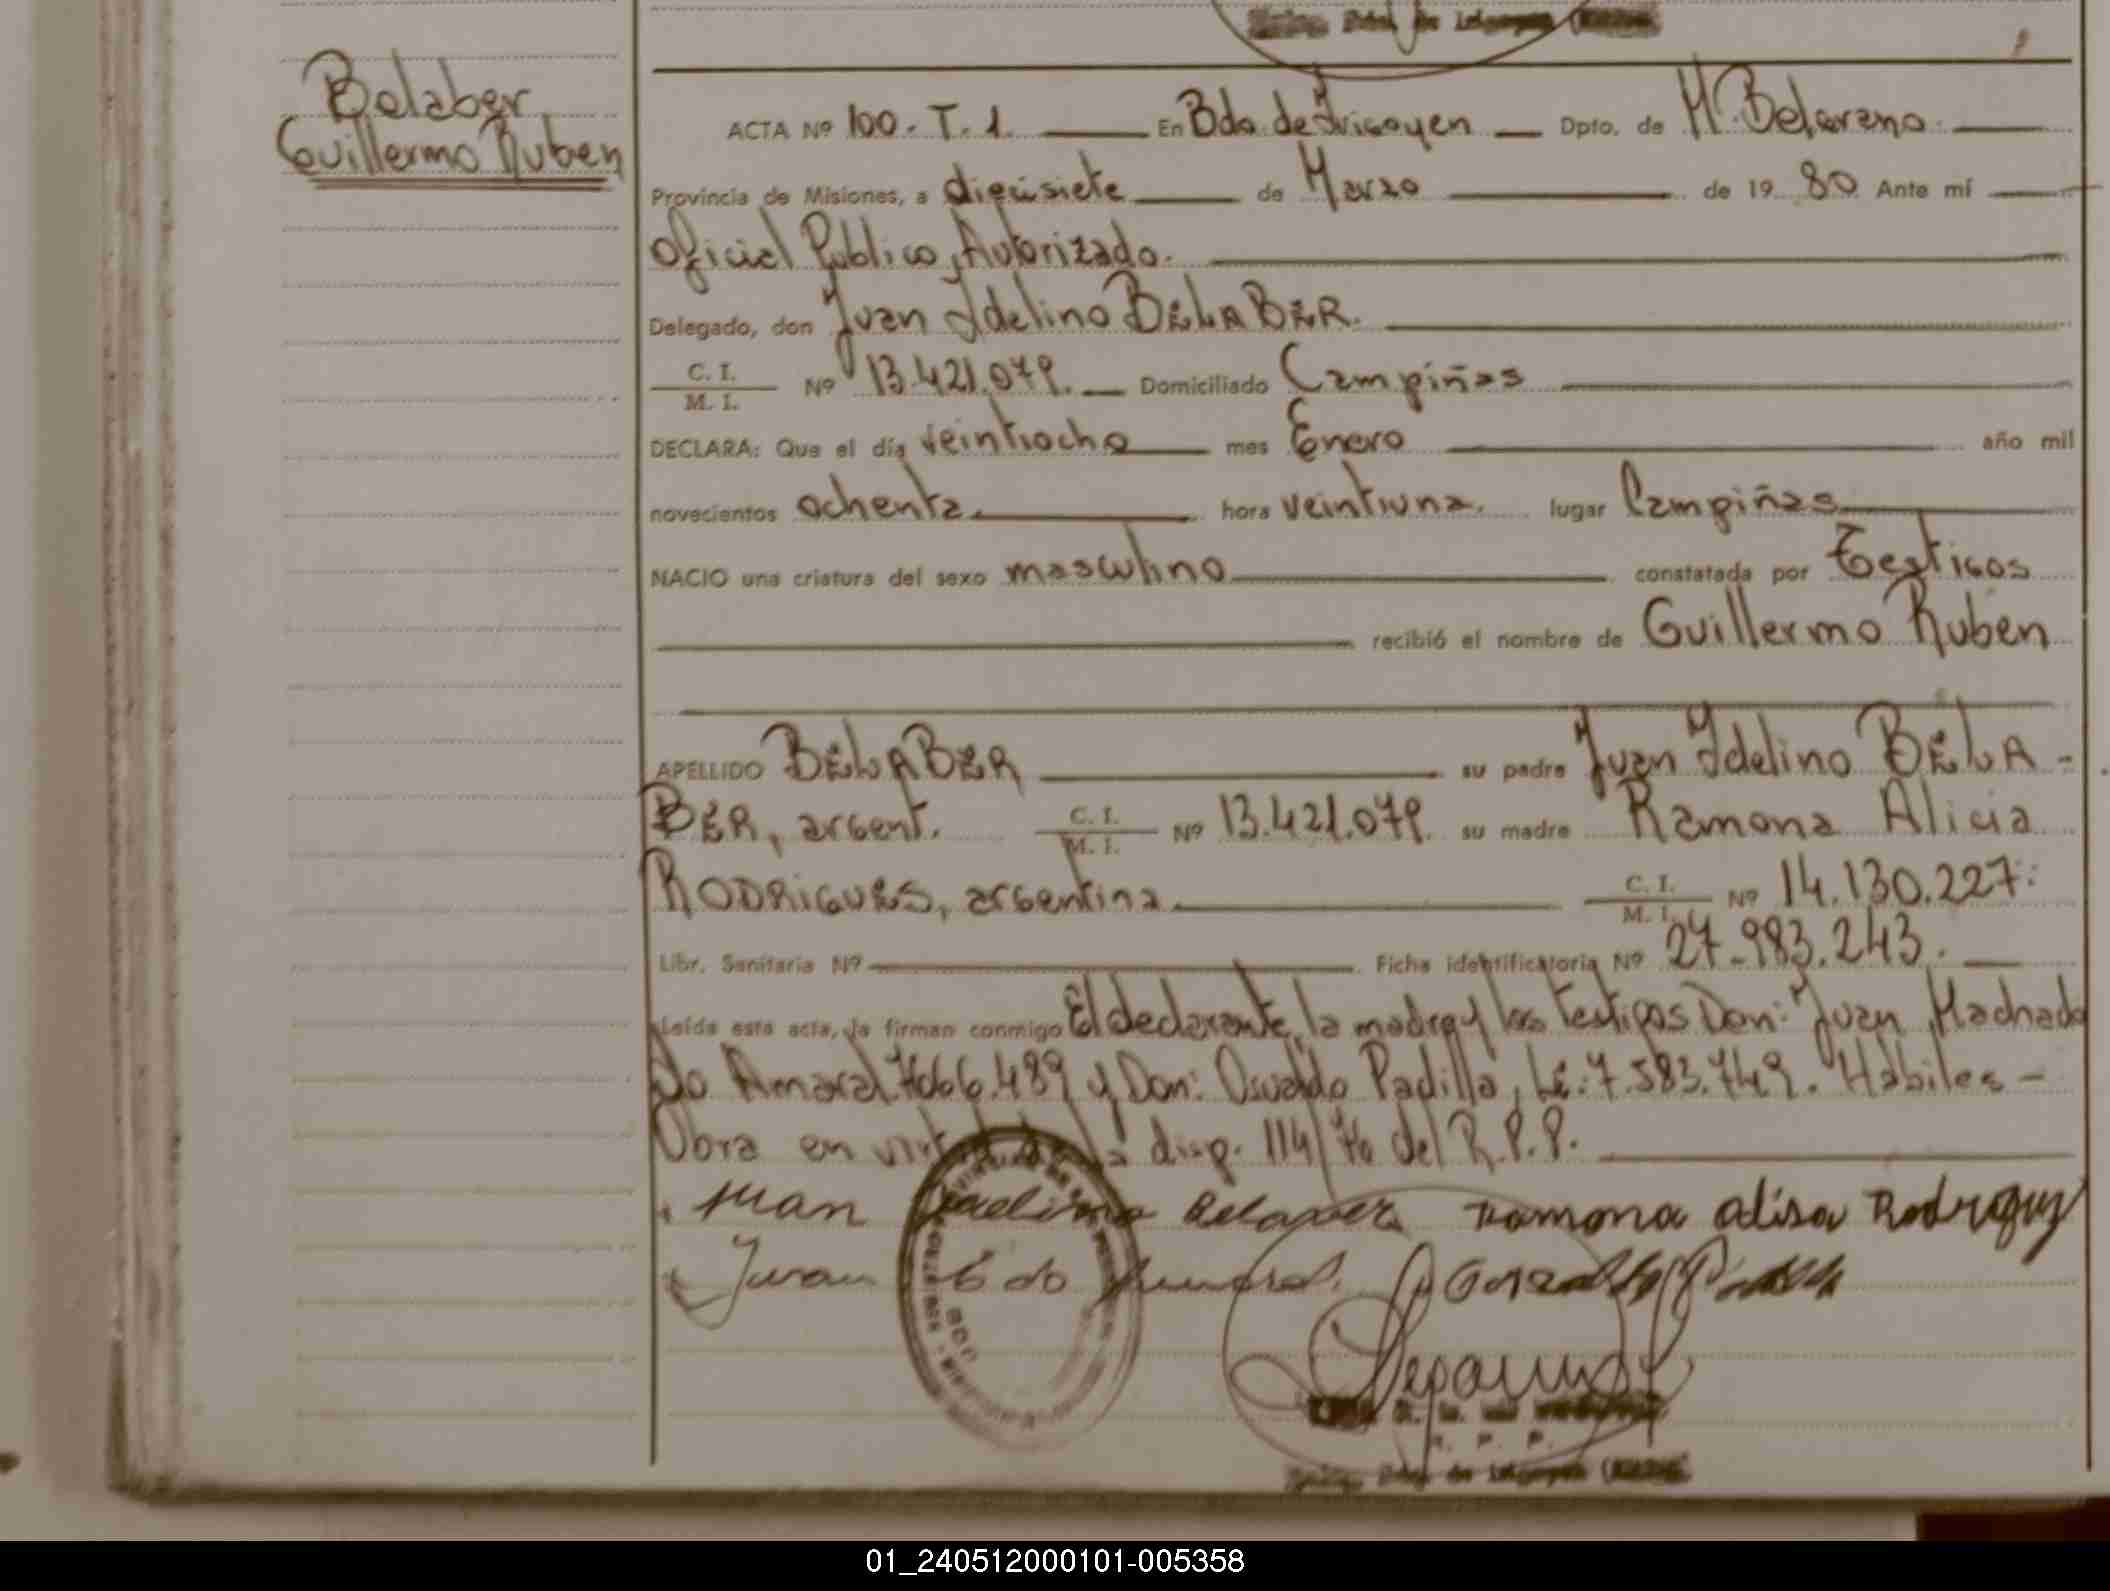 Belaber
Guillermo Ruben
ACTA Nº 100. T. 1. En Bdo. de Irigoyen Dpto. de M. Belgrano.
Provincia de Misiones, a diecisiete de Marzo de 19 80 Ante mí
Oficial Publico, Autorizado.
Delegado, don Juan Idelino BELABER.
C. I. / M. I. Nº 13.421.079. Domiciliado Campiñas
DECLARA: Que el día veintiocho mes Enero año mil
novecientos ochenta. hora veintiuna. lugar Campiñas
NACIO una criatura del sexo masculino constatada por Testigos
recibió el nombre de Guillermo Ruben
APELLIDO BELABER su padre Juan Idelino BELA-
BER, argent. C. I. / M. I. Nº 13.421.079. su madre Ramona Alicia
RODRIGUES, argentina C. I. / M. I. Nº 14.130.227.
Libr. Sanitaria Nº Ficha identificatoria Nº 27.983.243.
Leída esta acta, la firman conmigo El declarante, la madre y los testigos Don: Juan Machado
Do Amaral 7.066.489 y Don: Osvaldo Padilla, L.E: 7.583.749. Habiles -
Obra en la disp. 114/76 del R.P.P.
Juan Belaber Ramona Alisa Rodriguez
Juan do
R. P. P.
01_240512000101-005358